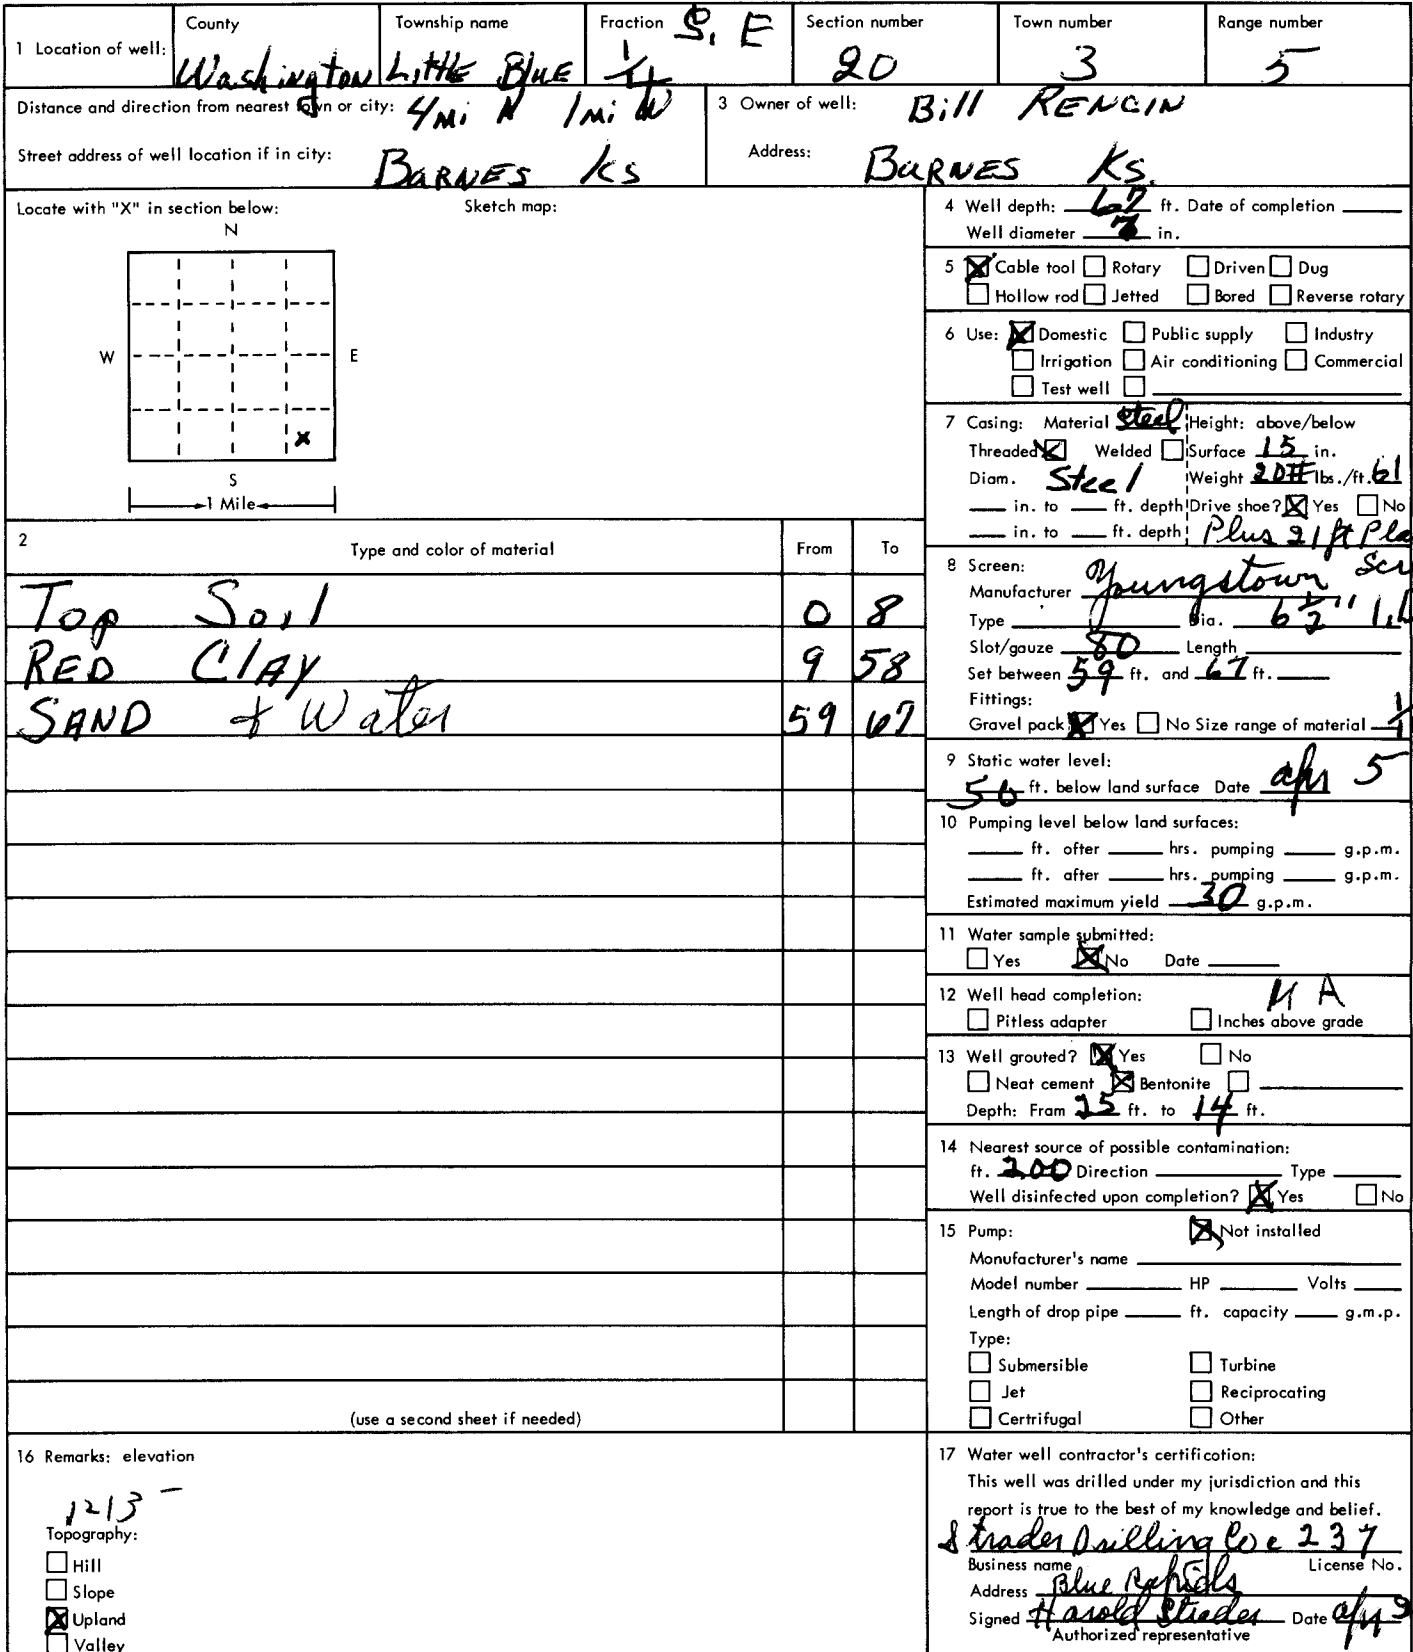 1 Location of well: County Washington Township name Little Blue Fraction 1/4 S. E Section number 20 Town number 3 Range number 5
Distance and direction from nearest town or city: 4 Mi N 1 Mi W
Street address of well location if in city: BARNES Ks
3 Owner of well: Bill RENCIN
Address: BARNES Ks.
Locate with "X" in section below: Sketch map:
N
W E
x
S
1 Mile
4 Well depth: 67 ft. Date of completion
Well diameter in.
5 X Cable tool Rotary Driven Dug
Hollow rod Jetted Bored Reverse rotary
6 Use: X Domestic Public supply Industry
Irrigation Air conditioning Commercial
Test well
7 Casing: Material Steel Height: above/below
Threaded X Welded Surface 15 in.
Diam. Steel Weight 20# lbs./ft. 61
in. to ft. depth Drive shoe? X Yes No
in. to ft. depth Plus 21 ft Pla
2 Type and color of material From To
Top Soil 0 8
RED Clay 9 58
SAND & Water 59 67
(use a second sheet if needed)
8 Screen: Scr
Manufacturer Youngstown
Type Dia. 6 1/2" I.D
Slot/gauze 80 Length
Set between 59 ft. and 67 ft.
Fittings:
Gravel pack X Yes No Size range of material
9 Static water level:
56 ft. below land surface Date apr 5
10 Pumping level below land surfaces:
ft. after hrs. pumping g.p.m.
ft. after hrs. pumping g.p.m.
Estimated maximum yield 30 g.p.m.
11 Water sample submitted:
Yes X No Date
12 Well head completion: N A
Pitless adapter Inches above grade
13 Well grouted? X Yes No
Neat cement X Bentonite
Depth: From ft. to 14 ft.
14 Nearest source of possible contamination:
ft. 200 Direction Type
Well disinfected upon completion? X Yes No
15 Pump: X Not installed
Manufacturer's name
Model number HP Volts
Length of drop pipe ft. capacity g.m.p.
Type:
Submersible Turbine
Jet Reciprocating
Certrifugal Other
16 Remarks: elevation
1213
Topography:
Hill
Slope
X Upland
Valley
17 Water well contractor's certification:
This well was drilled under my jurisdiction and this
report is true to the best of my knowledge and belief.
Strader Drilling Co 237
Business name License No.
Address Blue Rapids
Signed Harold Strader Date apr
Authorized representative